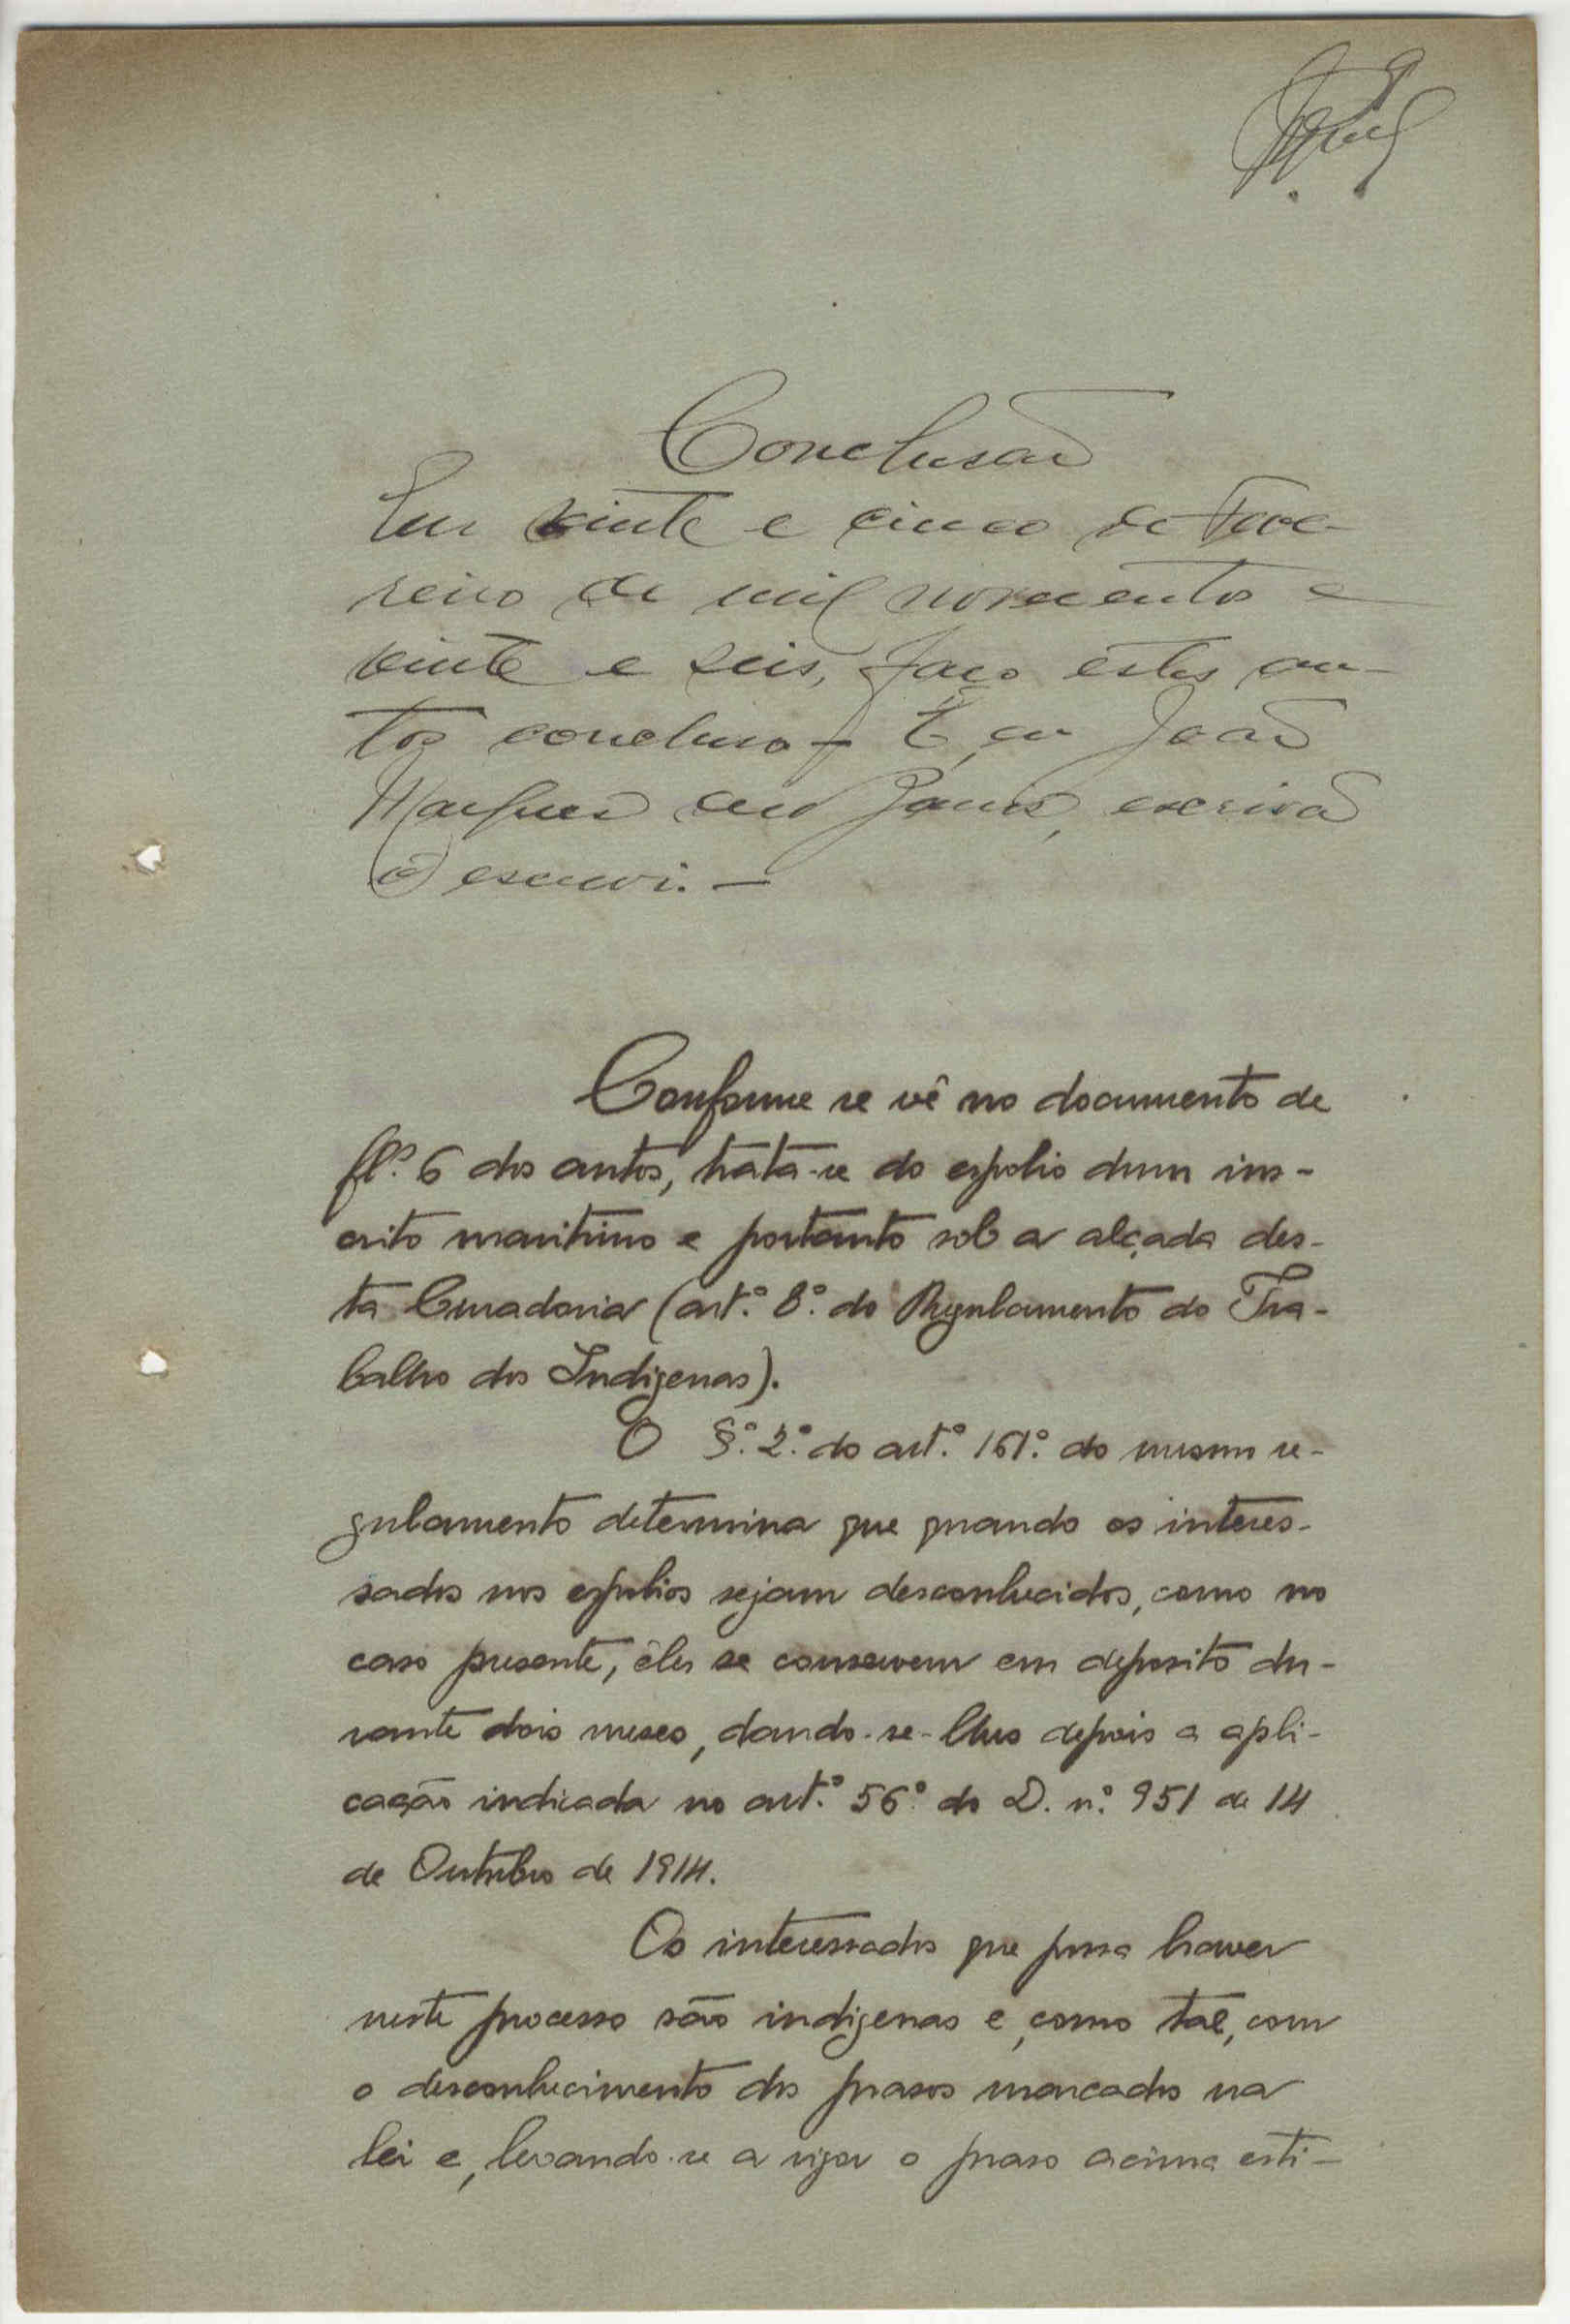 Conclusão
Em vinte e cinco de Feve-
reiro de mil novecentos e
vinte e seis, faço estes au-
tos conclusos. E eu João
Marques dos Santos, escrivão
o escrevi. —
Conforme se vê no documento de
fls. 6 dos autos, trata-se do espolio dum ins-
crito maritimo e portanto sob a alçada des-
ta Curadoria (art.º 8.º do Regulamento do Tra-
balho dos Indigenas).
O §.º 2.º do art.º 161.º do mesmo re-
gulamento determina que quando os interes-
sados nos espolios sejam desconhecidos, como no
caso presente, êles se conservem em deposito du-
rante dois meses, dando-se-lhes depois a apli-
cação indicada no art.º 56.º do D. n.º 951 de 14
de Outubro de 1914.
Os interessados que possa haver
neste processo são indigenas e, como tal, com
o desconhecimento dos prasos marcados na
lei e, levando-se a rigor o praso acima esti-